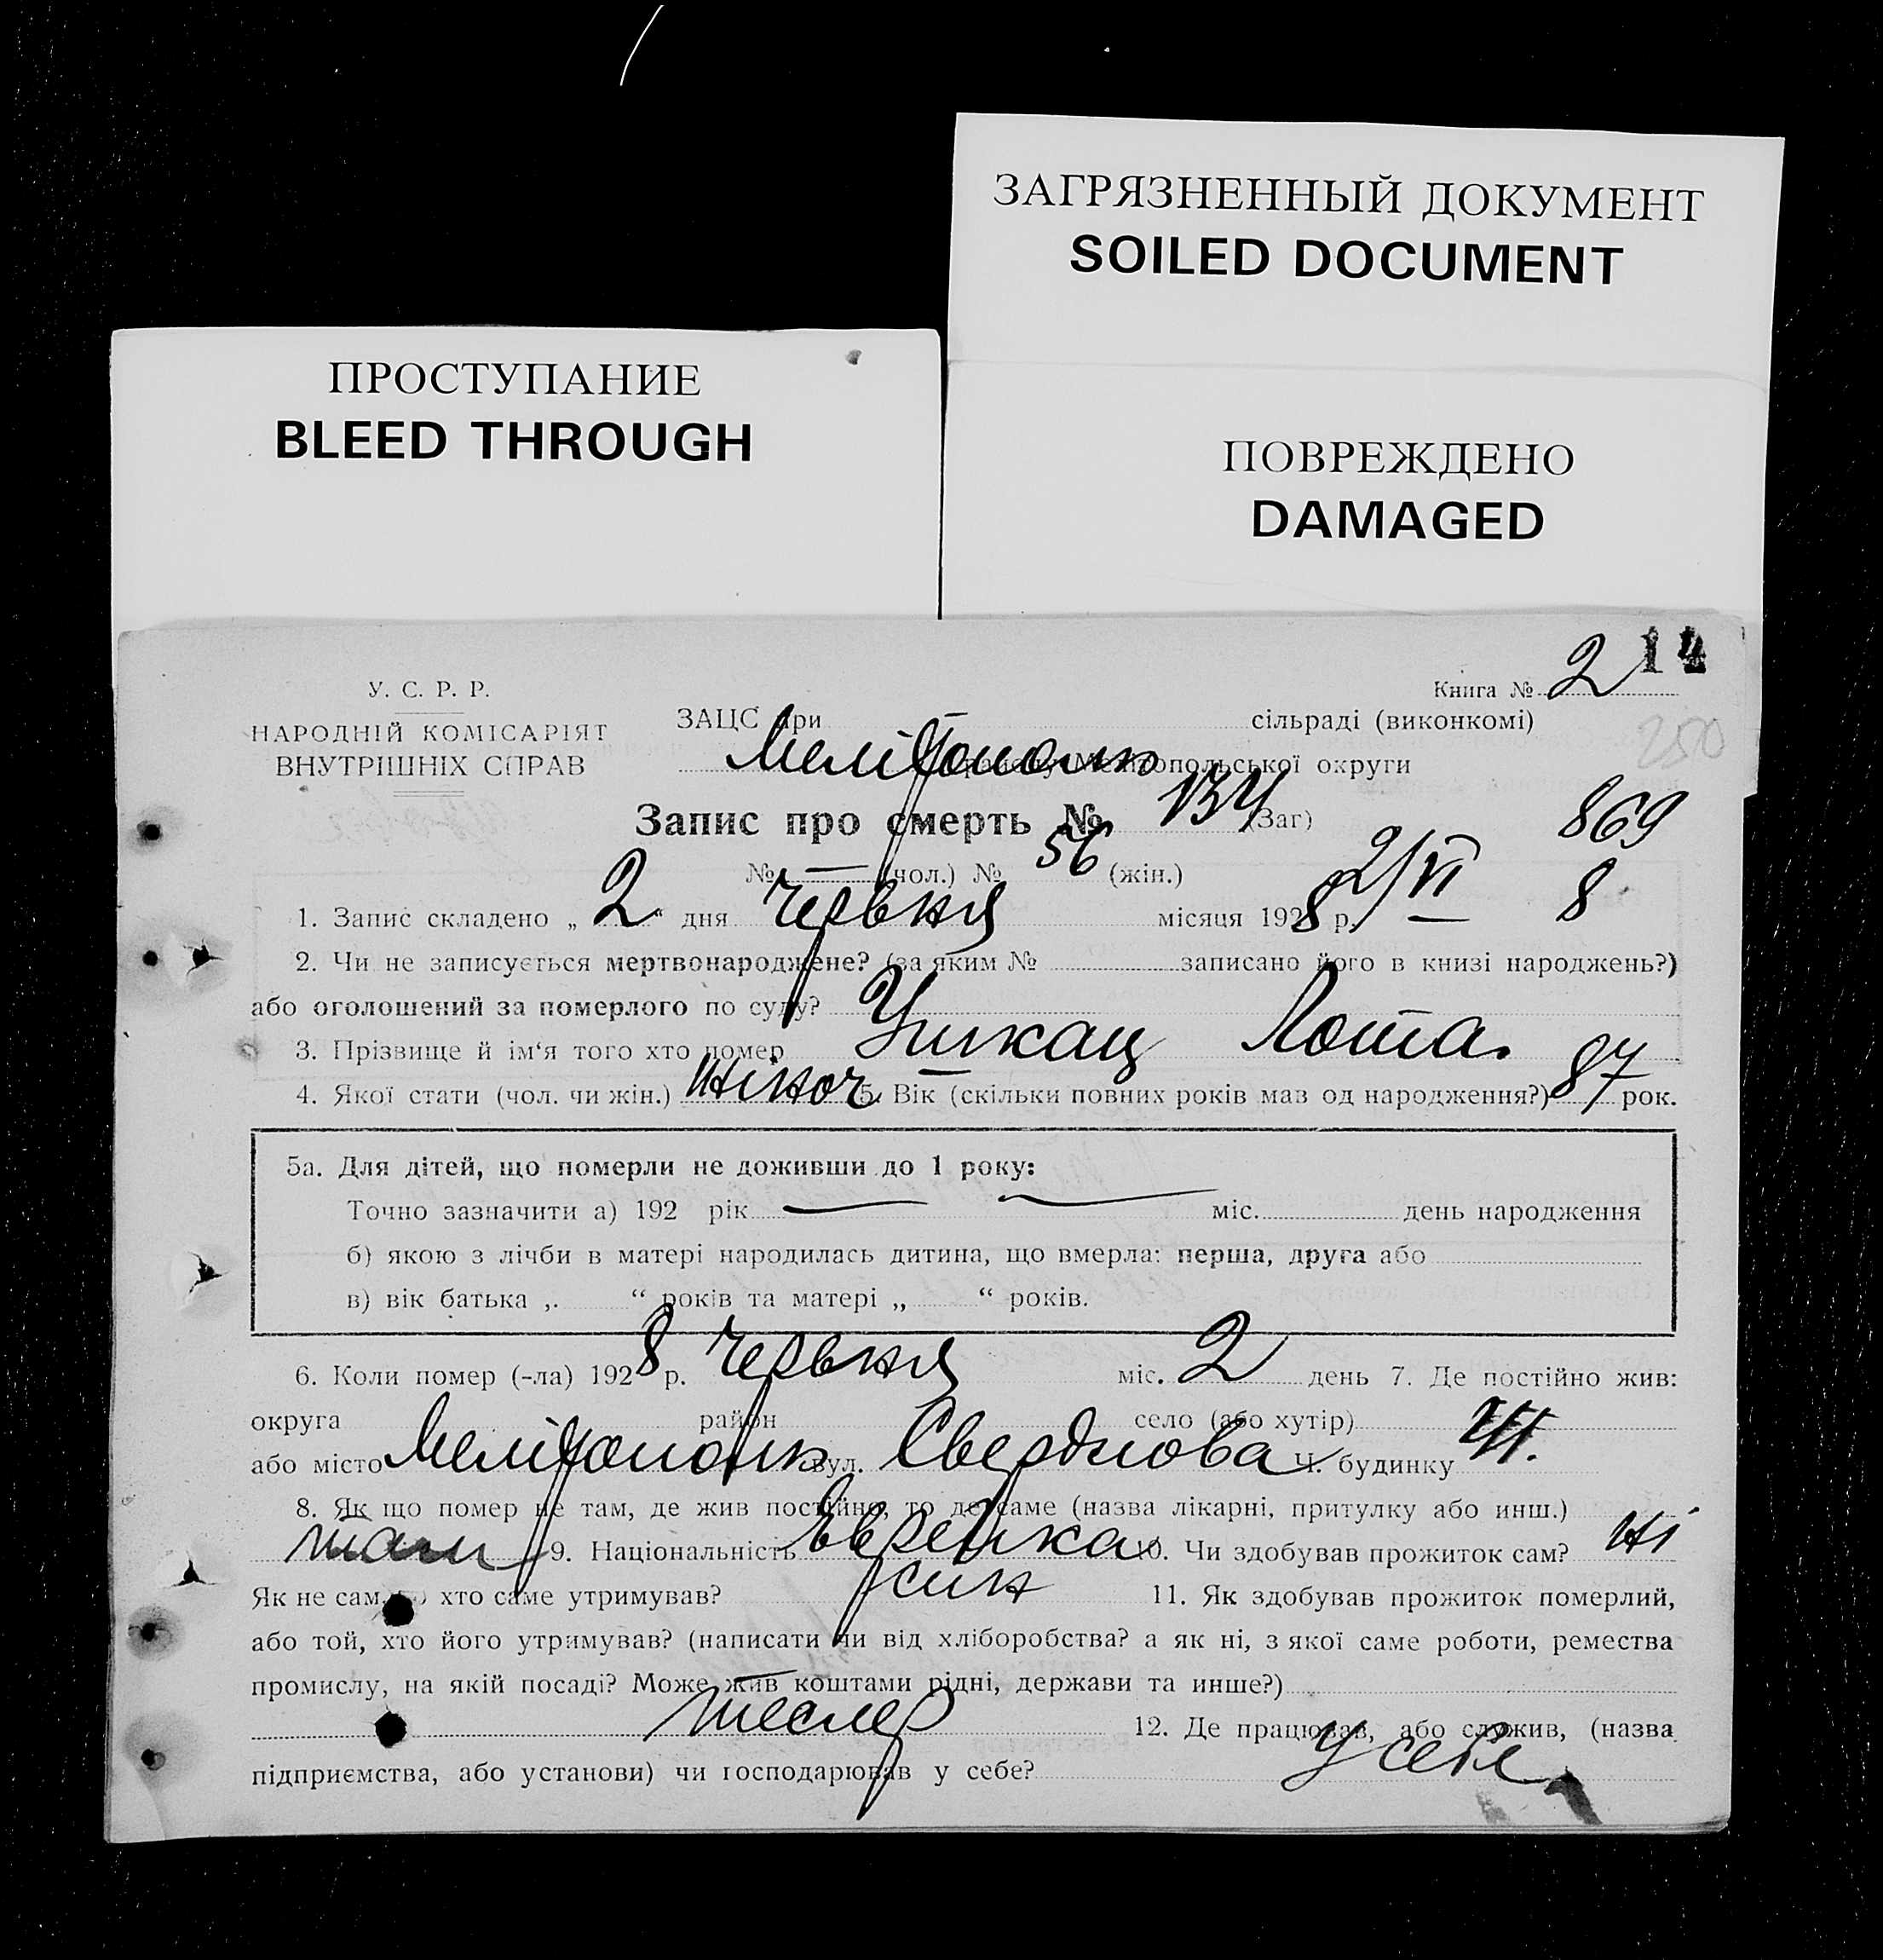 ЗАГРЯЗНЕННЫЙ ДОКУМЕНТ
SOILED DOCUMENT
ПРОСТУПАНИЕ
BLEED THROUGH
ПОВРЕЖДЕНО
DAMAGED
14
Книга № 2
У. С. Р. Р.
НАРОДНІЙ КОМІСАРІЯТ
ВНУТРІШНІХ СПРАВ
ЗАЦС при сільраді (виконкомі)
250
Мелітополь району Мелітопольської округи
Запис про смерть № 134 (Заг) 869
№ — (чол.) № 56 (жін.) 2/VI 8
1. Запис складено „ 2 “ дня Червня місяця 1928 р.
2. Чи не записується мертвонароджене? (за яким № записано його в книзі народжень?)
або оголошений за померлого по суду?
3. Прізвище й ім‘я того хто помер Лота.
4. Якої стати (чол. чи жін.) жіноч 5. Вік (скільки повних років мав од народження?) 87 рок.
5а. Для дітей, що померли не доживши до 1 року:
Точно зазначити а) 192 рік — — міс. день народження
б) якою з лічби в матері народилась дитина, що вмерла: перша, друга або
в) вік батька „ “ років та матері „ “ років.
6. Коли помер (-ла) 1928 р. Червня міс. 2 день 7. Де постійно жив:
округа район село (або хутір)
або місто Мелітополь вул. Свердлова Ч. будинку
8. Як що помер не там, де жив постійно, то де саме (назва лікарні, притулку або инш.)
там 9. Національність Еврейка 10. Чи здобував прожиток сам? ні
Як не сам, то хто саме утримував? син 11. Як здобував прожиток померлий,
або той, хто його утримував? (написати чи від хліборобства? а як ні, з якої саме роботи, ремества
промислу, на якій посаді? Може жив коштами рідні, держави та инше?)
тесляр 12. Де працював, або служив, (назва
підприємства, або установи) чи господарював у себе? У себе